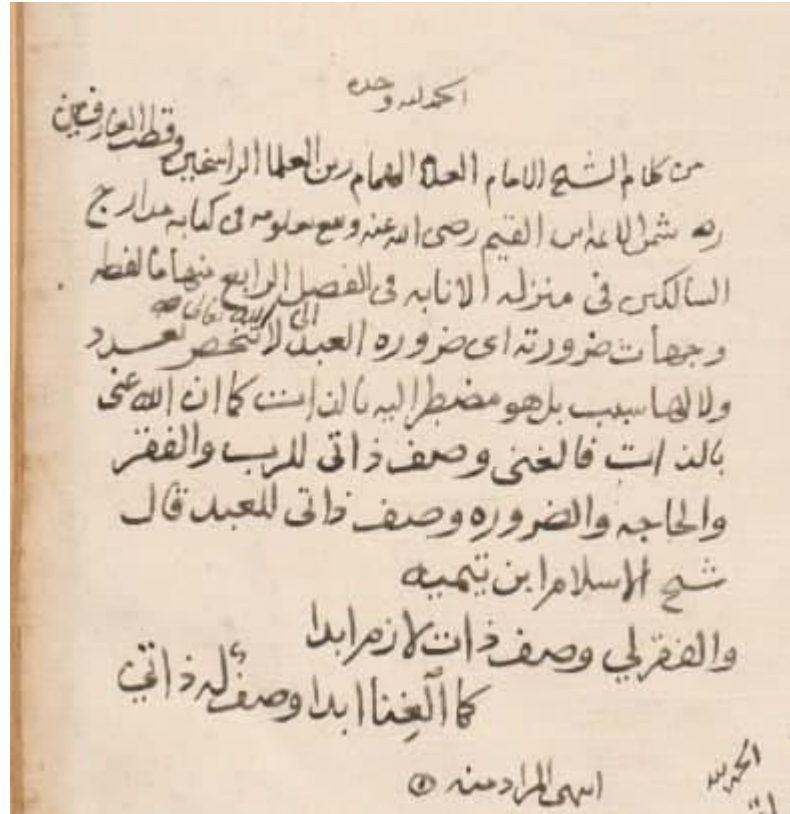 الحمد لله وحده
من كلام الشيخ الامام العلامة الهمام زين العلما الراسخين وقطب العارفين
شمس الدين ابن القيم رضي الله عنه ونفع بعلومه في كتابه مدارج
السالكين في منزله الانابه في الفصل الرابع منها ما لفظه
وجهات ضرورته اي ضروره العبد الى الله تعالى لا تنحصر بعدد
ولا لها سبب بل هو مضطر اليه بالذات كما ان الله غني
بالذات فالغنى وصف ذاتي للرب والفقر
والحاجه والضروره وصف ذاتي للعبد قال
شيخ الاسلام ابن تيميه
والفقر لي وصف ذات لازم ابدا
كما الغنا ابدا وصف له ذاتي
انتهى المراد منه
الحمد لله